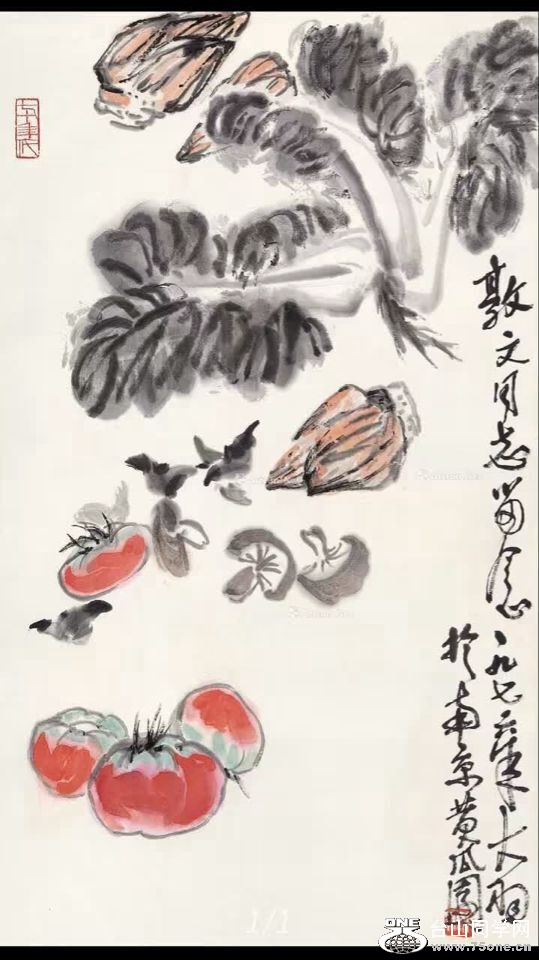 敦文同志留念一九七六年大羽
於南京黄瓜園
1/1
ONE
台山同学网
www.75one.cn